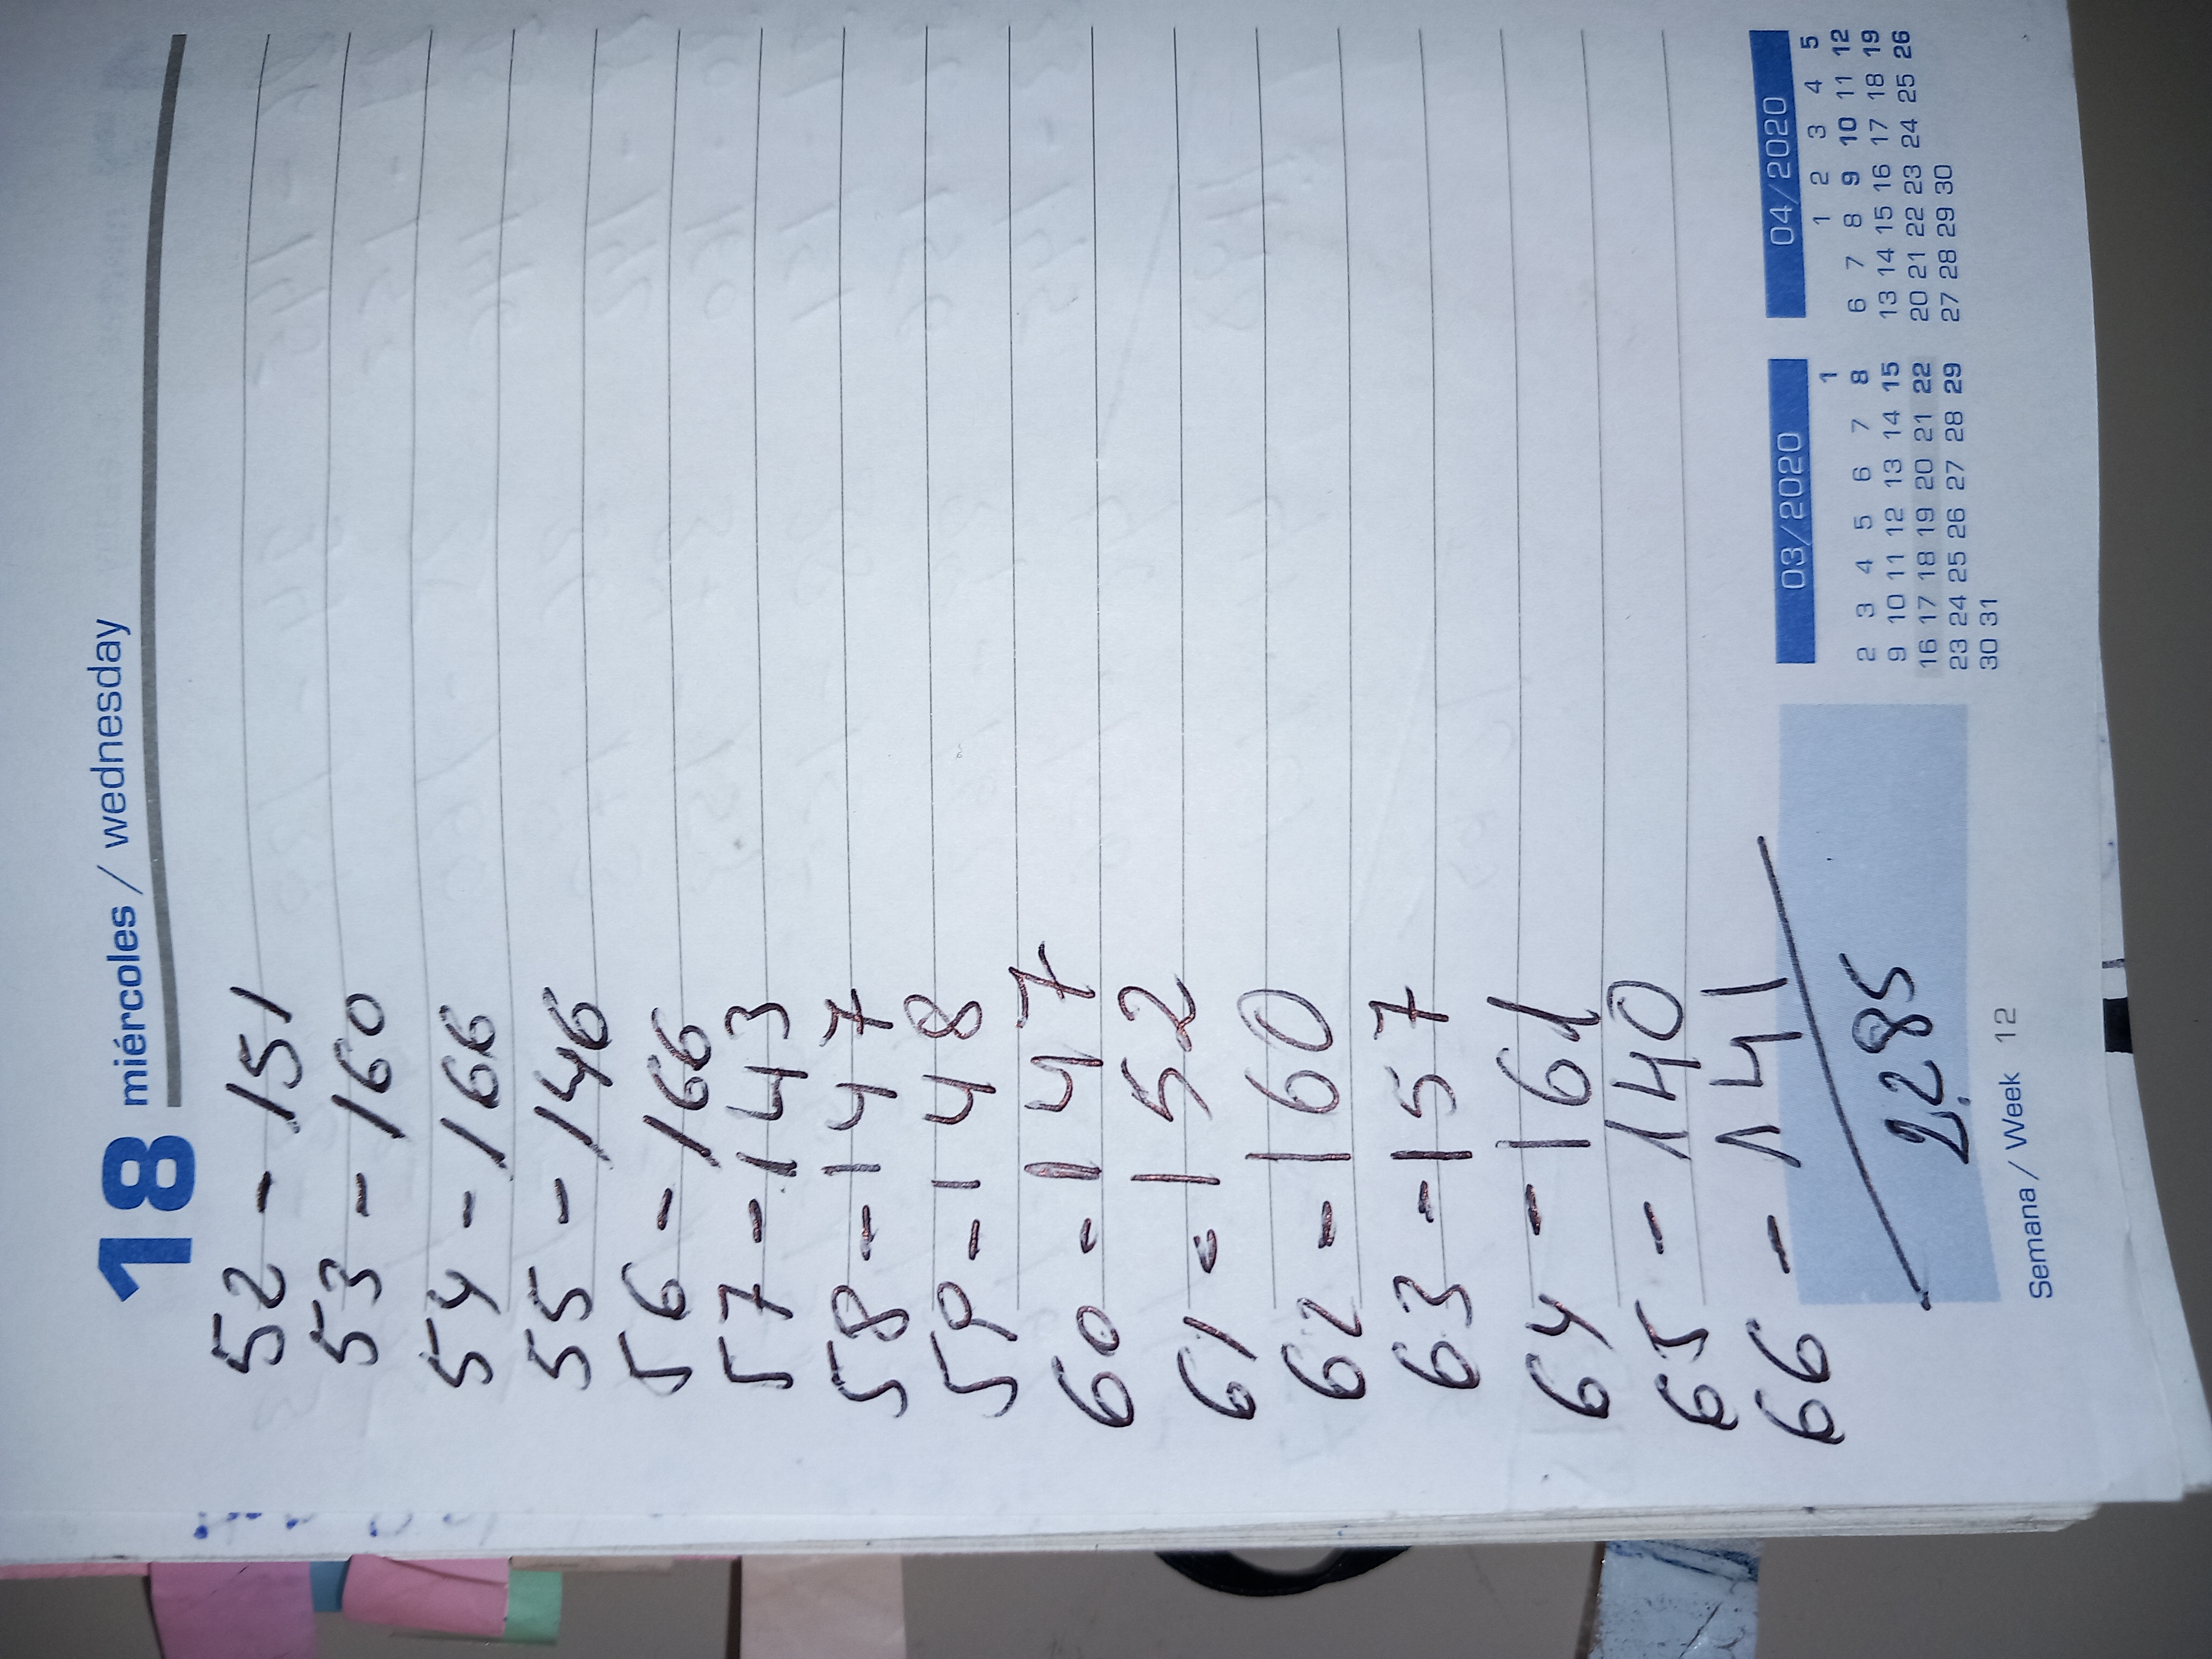 18 miércoles / wednesday
52 - 151
53 - 160
54 - 166
55 - 146
56 - 166
57 - 143
58 - 147
59 - 148
60 - 147
61 - 152
62 - 160
63 - 157
64 - 161
65 - 140
66 - 141
2.285
Semana / Week 12
03/2020
1
2 3 4 5 6 7 8
9 10 11 12 13 14 15
16 17 18 19 20 21 22
23 24 25 26 27 28 29
30 31
04/2020
1 2 3 4 5
6 7 8 9 10 11 12
13 14 15 16 17 18 19
20 21 22 23 24 25 26
27 28 29 30